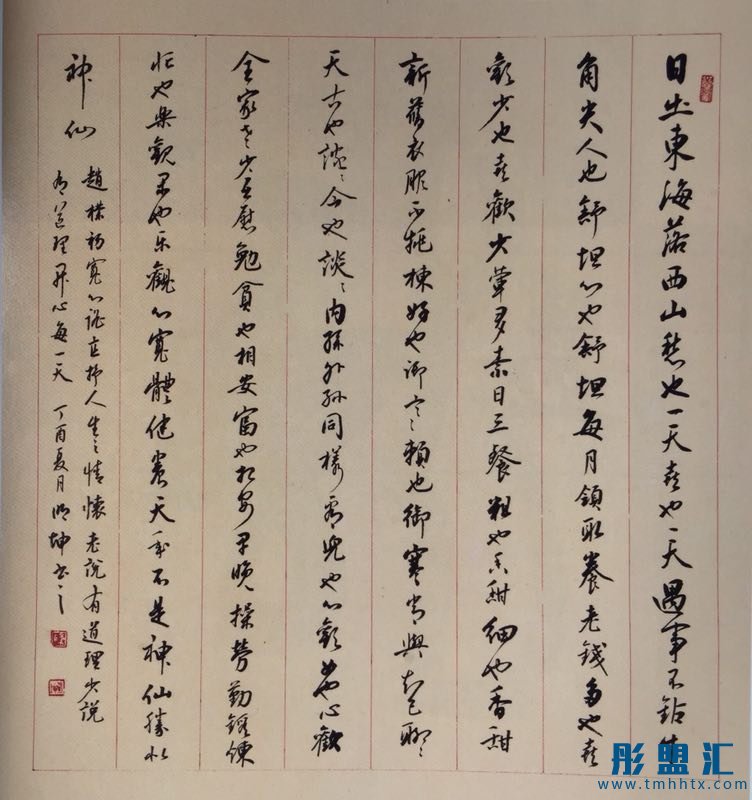 日出東海落西山愁也一天喜也一天遇事不鉆牛
角尖人也舒坦心也舒坦每月領取養老錢多也喜
歡少也喜歡少葷多素日三餐粗也香甜細也香甜
新舊衣服不挑揀好也御寒賴也御寒常與知己聊〻
天古也談〻今也談〻内孫外孫同樣看兒也心歡女也心歡
全家老少互慰勉貧也相安富也相安早晚操勞勤鍛鍊
忙也樂觀閑也樂觀心寬體健養天年不是神仙勝似
神仙
趙樸初寬心謠直抒人生之情懷老說有道理少說
有道理開心每一天 丁酉夏月 明坤書之
彤盟汇
www.tmhhtx.com